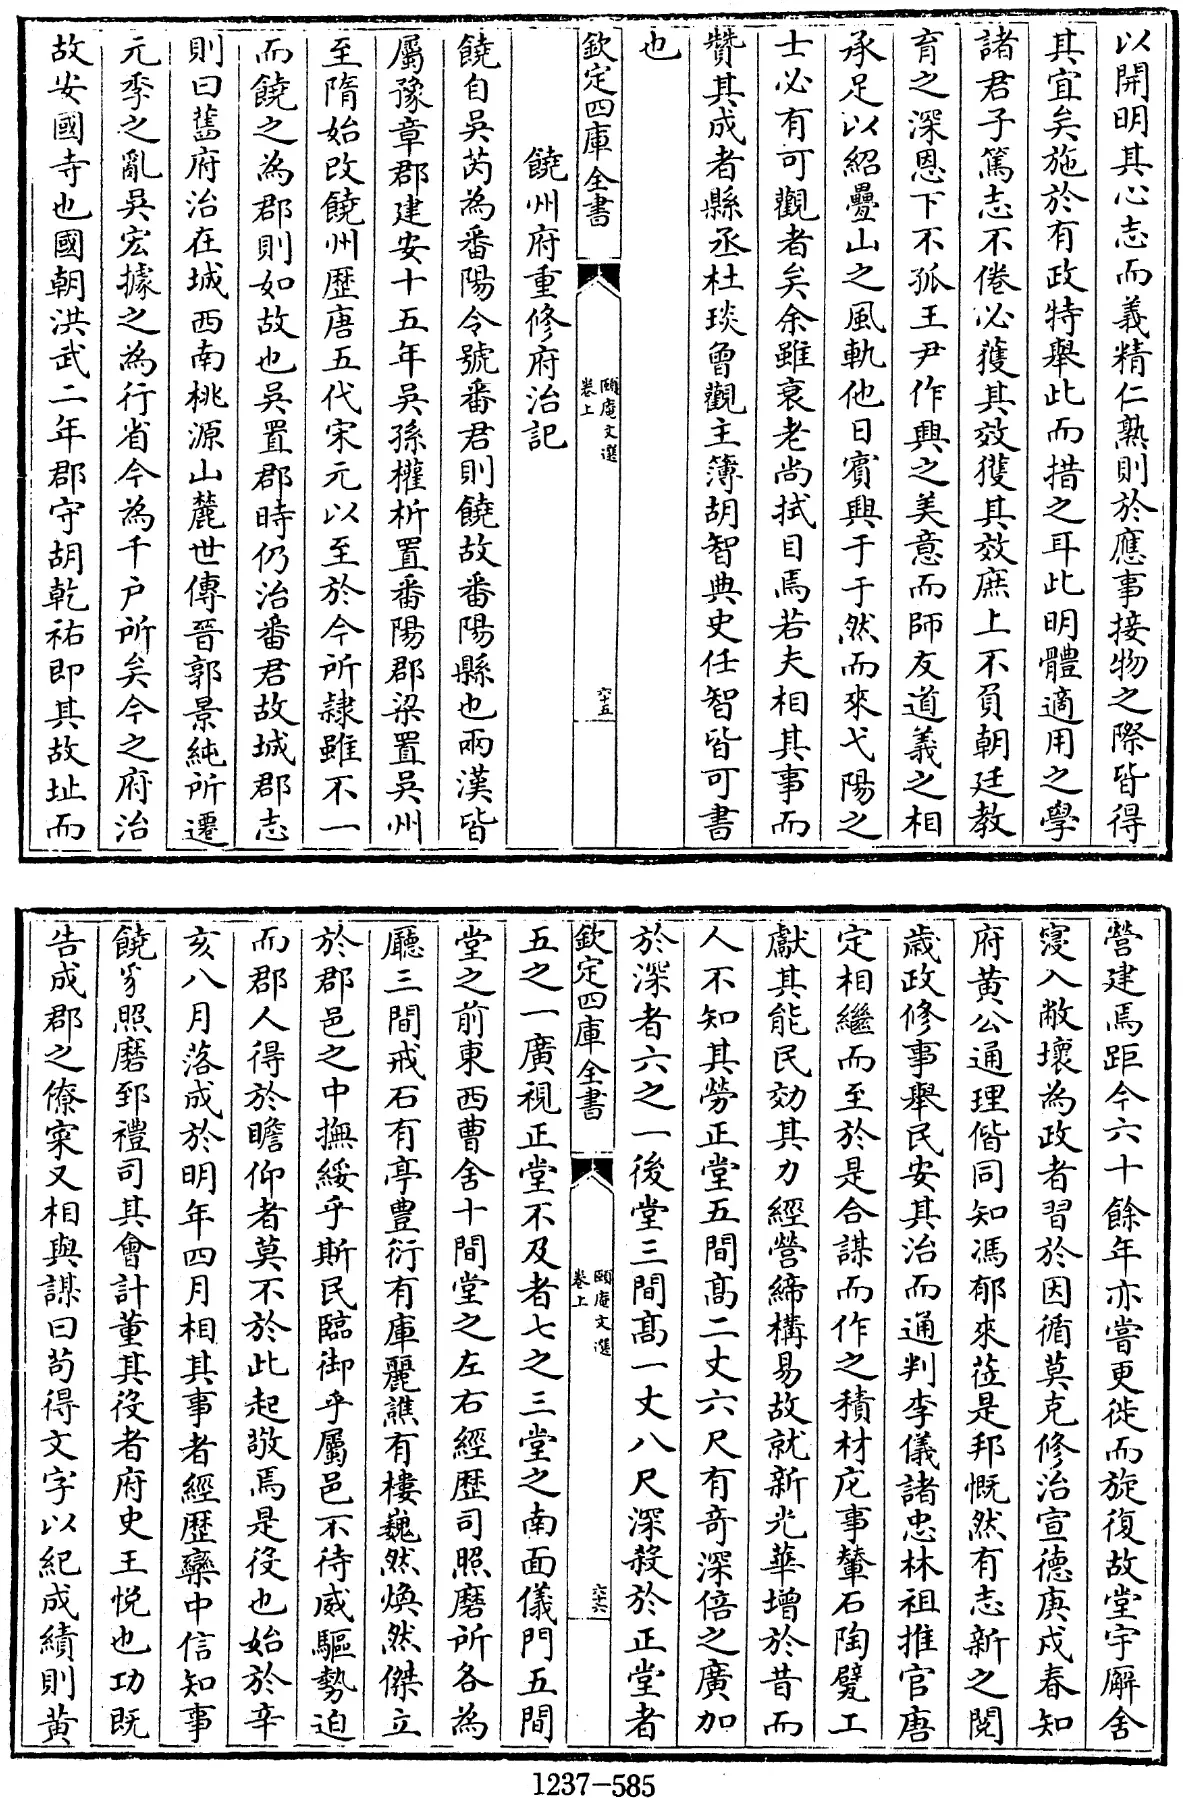 以開明其心志而義精仁熟則於應事接物之際皆得
其宜矣施於有政特舉此而措之耳此明體適用之學
諸君子篤志不倦必獲其效獲其效庶上不負朝廷教
育之深恩下不孤王尹作興之美意而師友道義之相
承足以紹疊山之風軌他日賓興于于然而來弋陽之
士必有可觀者矣余雖衰老尚拭目焉若夫相其事而
贊其成者縣丞杜琰曾觀主簿胡智典史任智皆可書
也
欽定四庫全書
頤庵文選
卷上
六十五
饒州府重修府治記
饒自吳芮為番陽令號番君則饒故番陽縣也兩漢皆
屬豫章郡建安十五年吳孫權析置番陽郡梁置吳州
至隋始改饒州歷唐五代宋元以至於今所隸雖不一
而饒之為郡則如故也吳置郡時仍治番君故城郡志
則曰舊府治在城西南桃源山麓世傳晉郭景純所遷
元季之亂吳宏據之為行省今為千户所矣今之府治
故安國寺也國朝洪武二年郡守胡乾祐即其故址而
營建焉距今六十餘年亦嘗更徙而旋復故堂宇廨舍
寖入敝壞為政者習於因循莫克修治宣德庚戌春知
府黄公通理偕同知馮郁來蒞是邦慨然有志新之閱
歲政修事舉民安其治而通判李儀諸忠林祖推官唐
定相繼而至於是合謀而作之積材庀事輦石陶甓工
獻其能民効其力經營締構易故就新光華增於昔而
人不知其勞正堂五間髙二丈六尺有奇深倍之廣加
於深者六之一後堂三間髙一丈八尺深殺於正堂者
欽定四庫全書
頤庵文選
卷上
六十六
五之一廣視正堂不及者七之三堂之南面儀門五間
堂之前東西曹舍十間堂之左右經歷司照磨所各為
廳三間戒石有亭豊衍有庫麗譙有樓巍然煥然傑立
於郡邑之中撫綏乎斯民臨御乎屬邑不待威驅勢迫
而郡人得於瞻仰者莫不於此起敬焉是役也始於辛
亥八月落成於明年四月相其事者經歷欒中信知事
饒豸照磨郅禮司其會計董其役者府史王悅也功既
告成郡之僚寀又相與謀曰苟得文字以紀成績則黄
1237-585